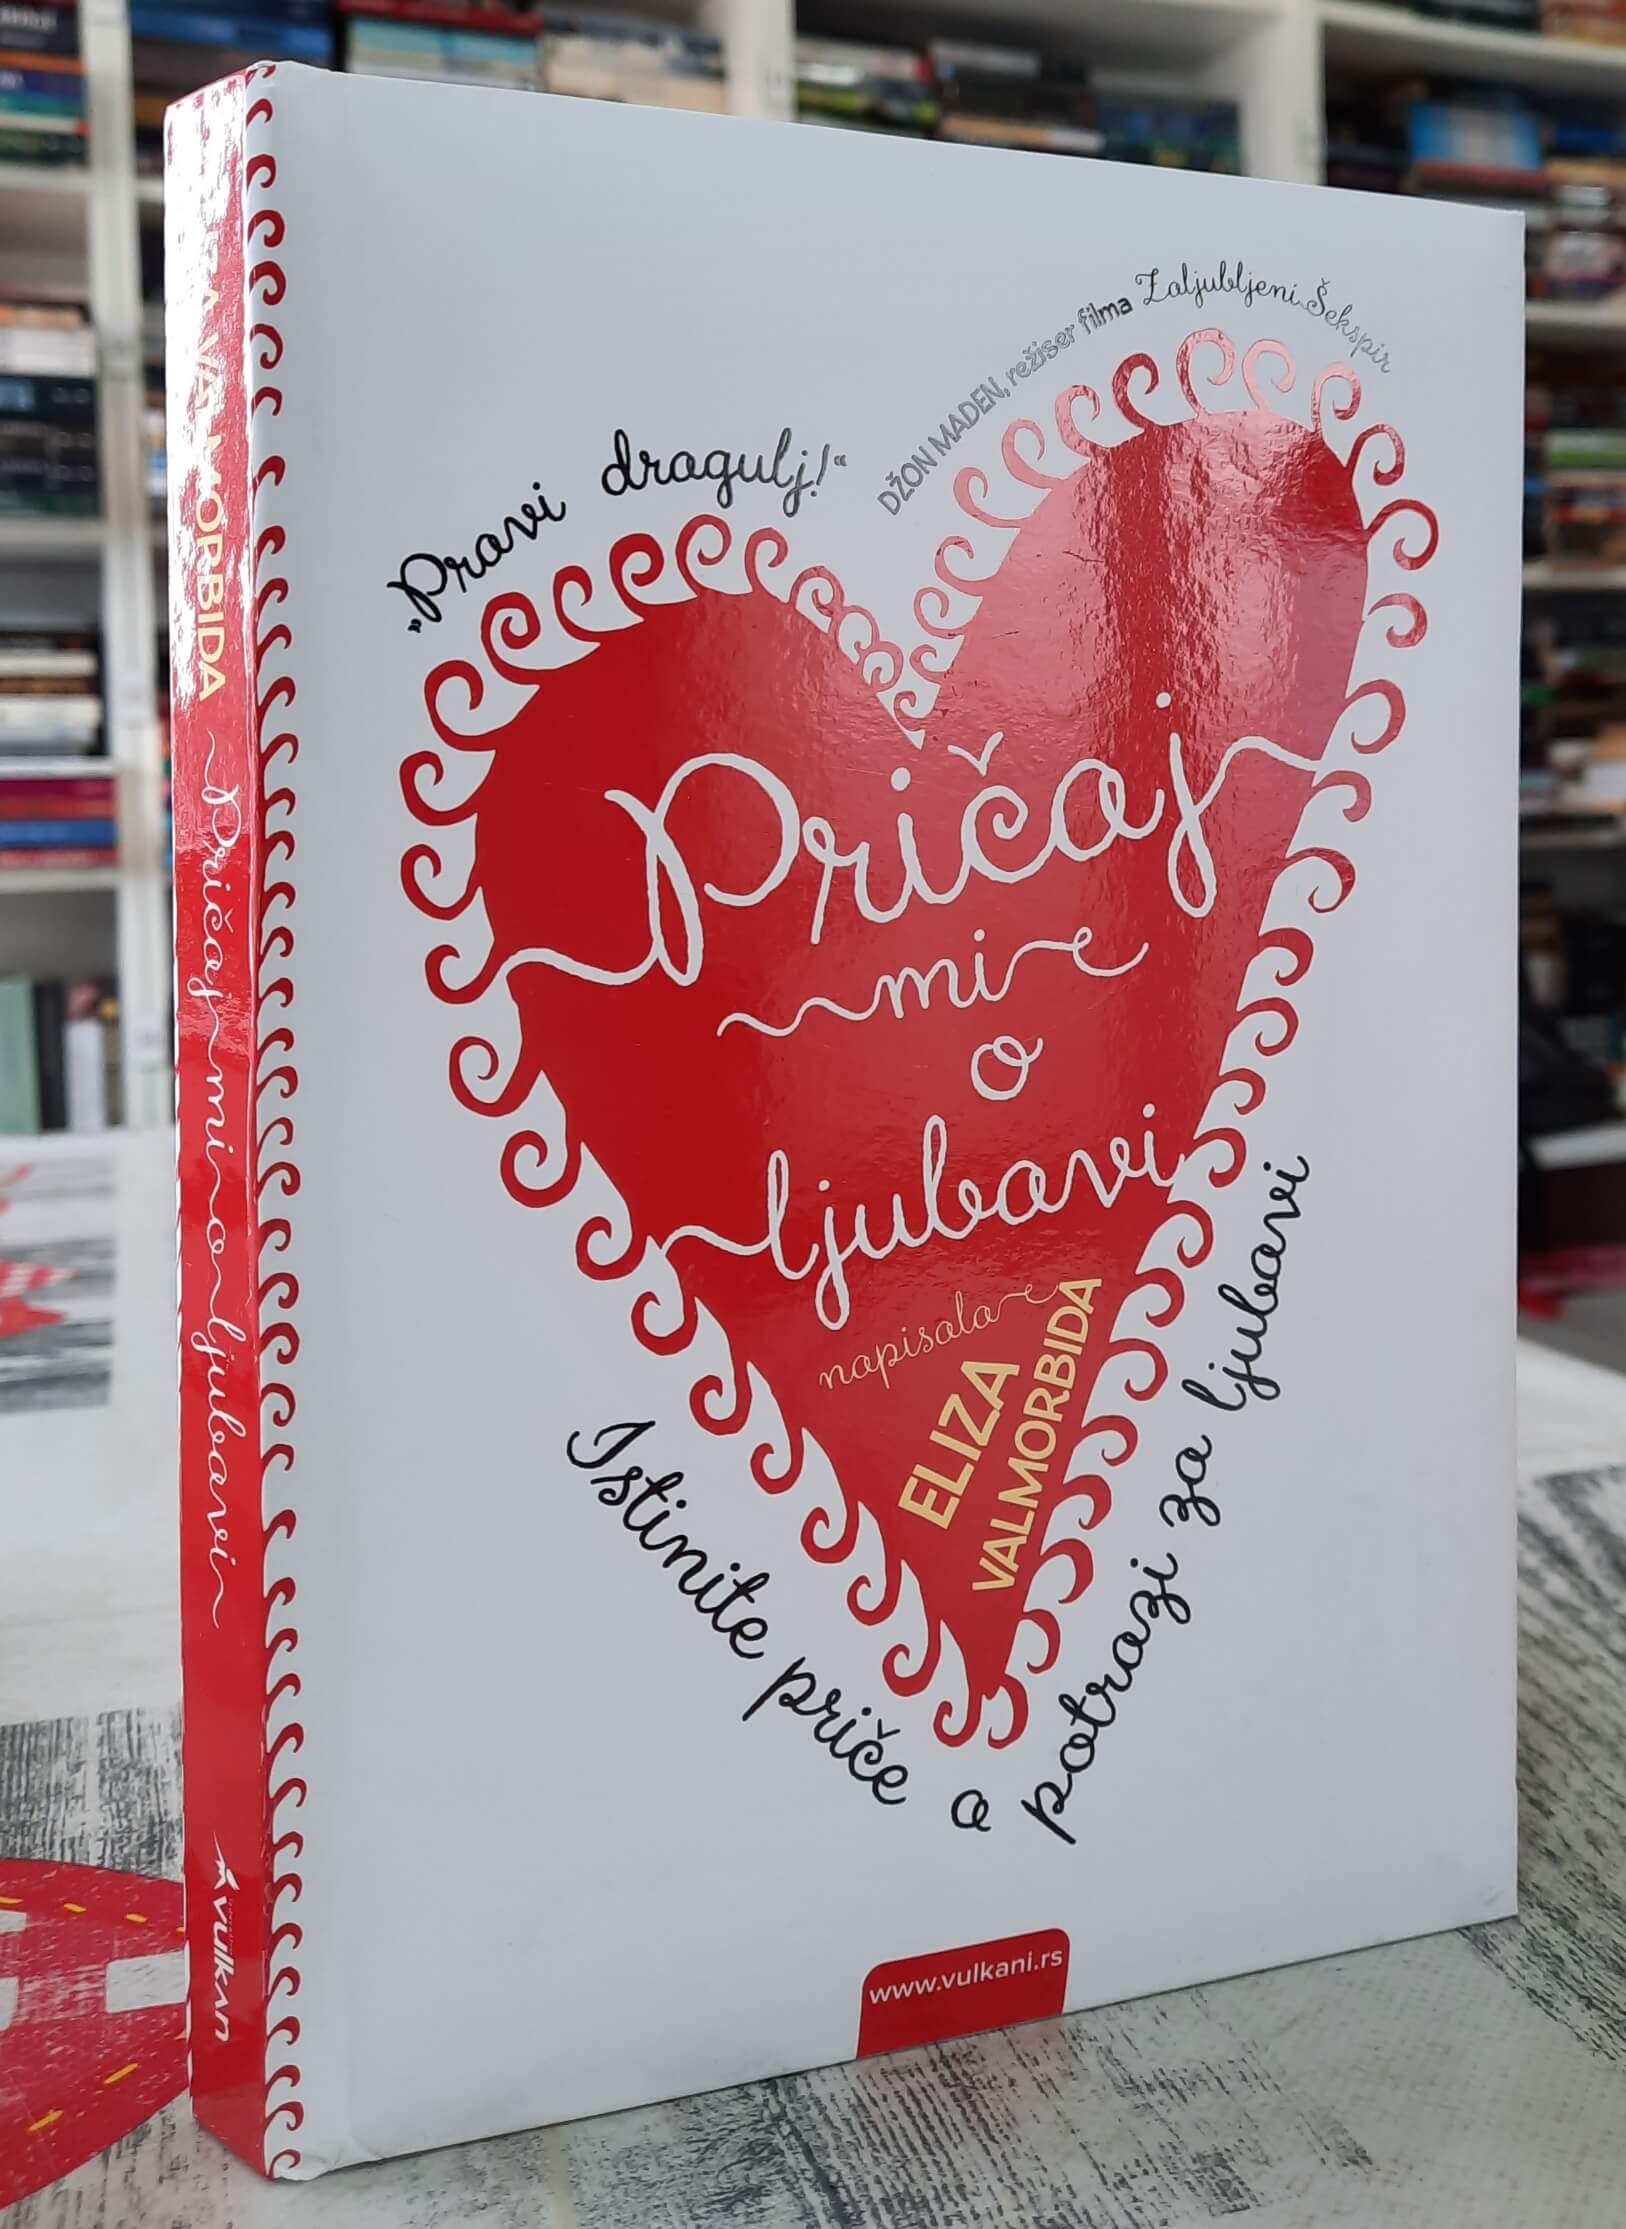 „Pravi dragulj!“
DŽON MADEN, režiser filma Zaljubljeni Šekspir
Pričaj
mi
o
ljubavi
napisala
ELIZA
VALMORBIDA
Istinite priče o potrazi za ljubavi
www.vulkani.rs
VALMORBIDA Pričaj mi o ljubavi
vulkan